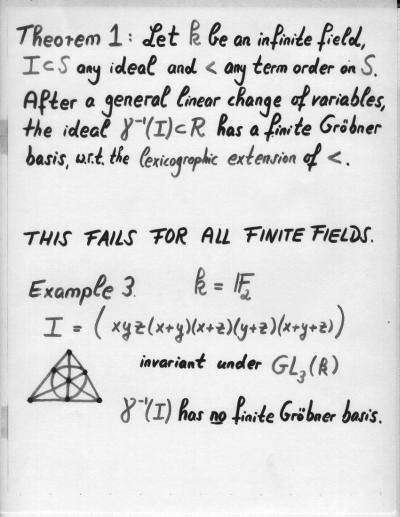 Theorem 1: Let k be an infinite field,
I ⊂ S any ideal and < any term order on S.
After a general linear change of variables,
the ideal γ⁻¹(I) ⊂ R has a finite Gröbner
basis, w.r.t. the lexicographic extension of <.
THIS FAILS FOR ALL FINITE FIELDS.
Example 3. k = 𝔽₂
I = (xyz(x+y)(x+z)(y+z)(x+y+z))
invariant under GL₃(k)
γ⁻¹(I) has no finite Gröbner basis.